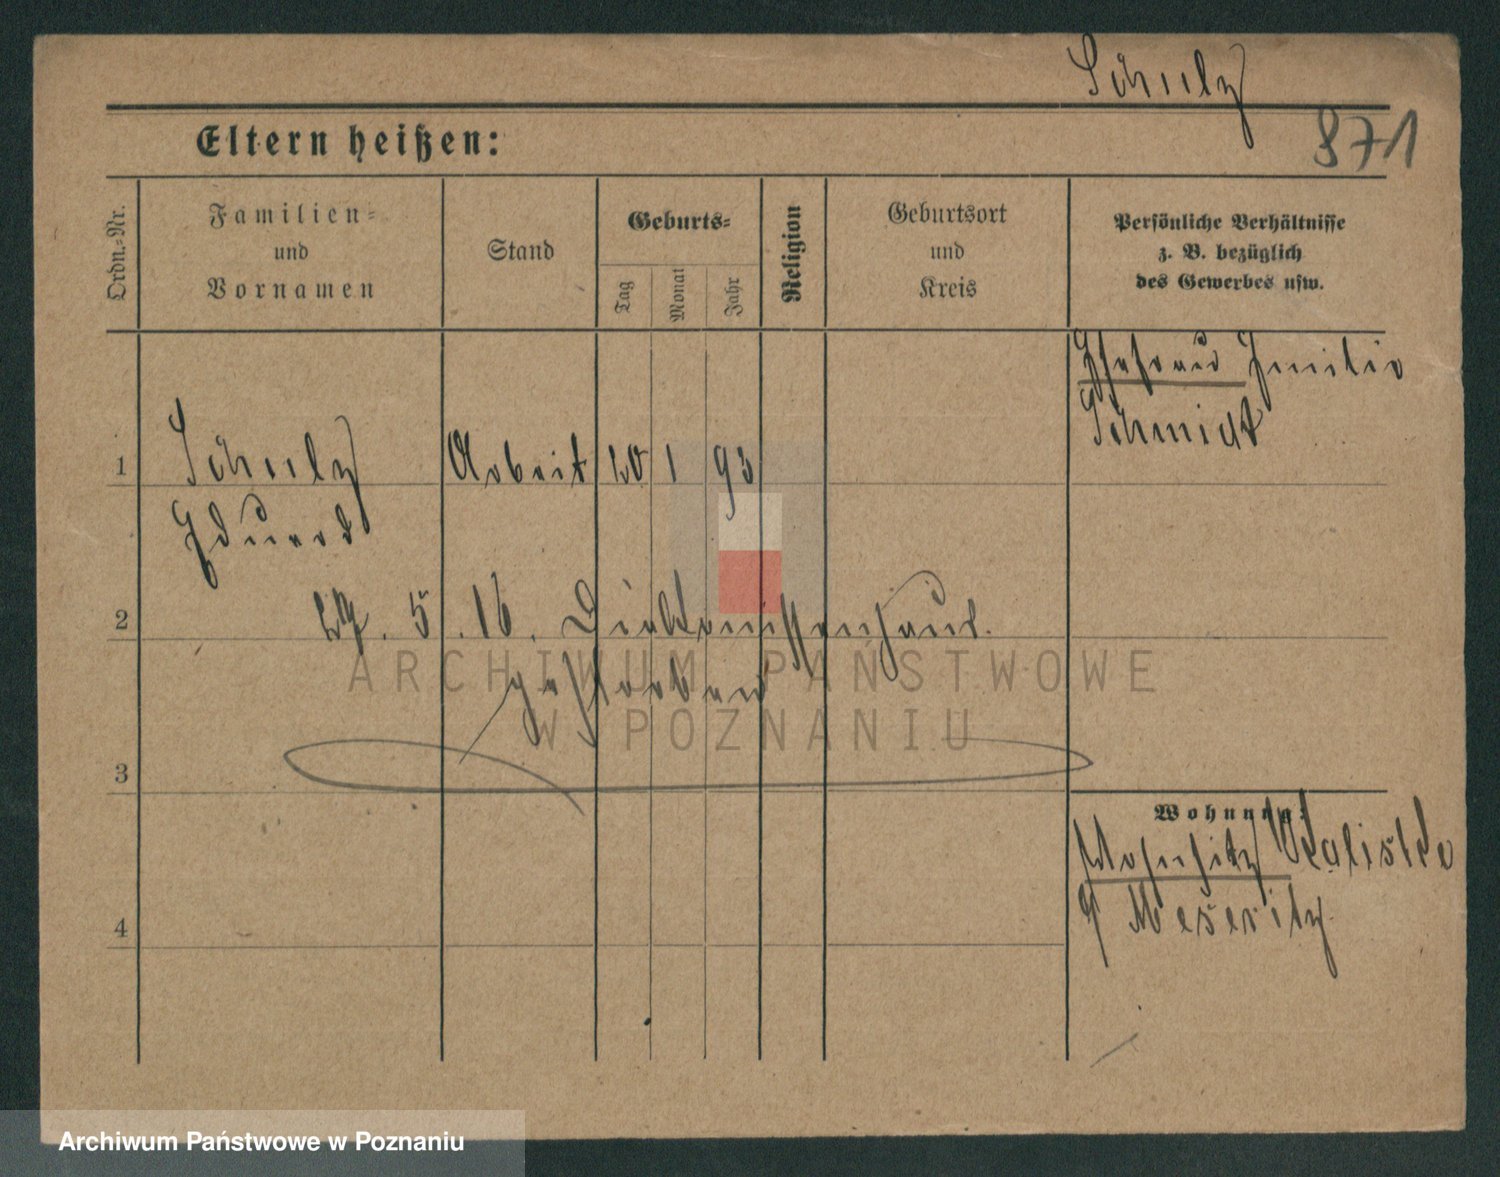 Schulz
871
Eltern heißen:
Ordn.-Nr.
Familien-
und
Vornamen
Stand
Geburts-
Tag
Monat
Jahr
Religion
Geburtsort
und
Kreis
Persönliche Verhältnisse
z. B. bezüglich
des Gewerbes usw.
Ehefrau Emilie
Schmidt
1
Schulz
Arbeit
20
1
93
Eduard
2
29. 5. 16. Diakonissenhaus
gestorben
3
Wohnung:
Wohnsitz
4
Meseritz
ARCHIWUM PAŃSTWOWE
W POZNANIU
Archiwum Państwowe w Poznaniu